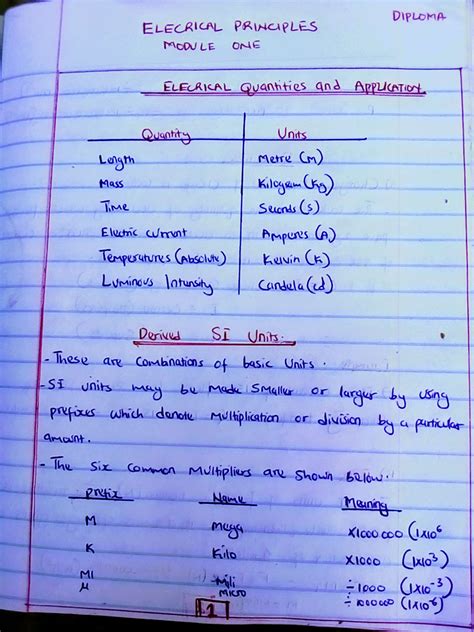 DIPLOMA
ELECRICAL PRINCIPLES
MODULE ONE
ELECRICAL Quantities and Application
Quantity Units
Length Metre (M)
Mass Kilogram (Kg)
Time Seconds (s)
Electric Current Amperes (A)
Temperatures (Absolute) Kelvin (K)
Luminous Intensity Candela (cd)
Derived SI Units.
- These are Combinations of basic Units.
- SI Units may be Made Smaller or larger by using
prefixes which denote Multiplication or division by a particular
amount.
- The Six Common Multipliers are Shown Below.
Prefix Name Meaning
M Mega X1000000 (1x10^6
K Kilo X1000 (1x10^3)
MI Mili ÷1000 (1x10^-3)
μ Micro ÷1000000 (1x10^-6)
1